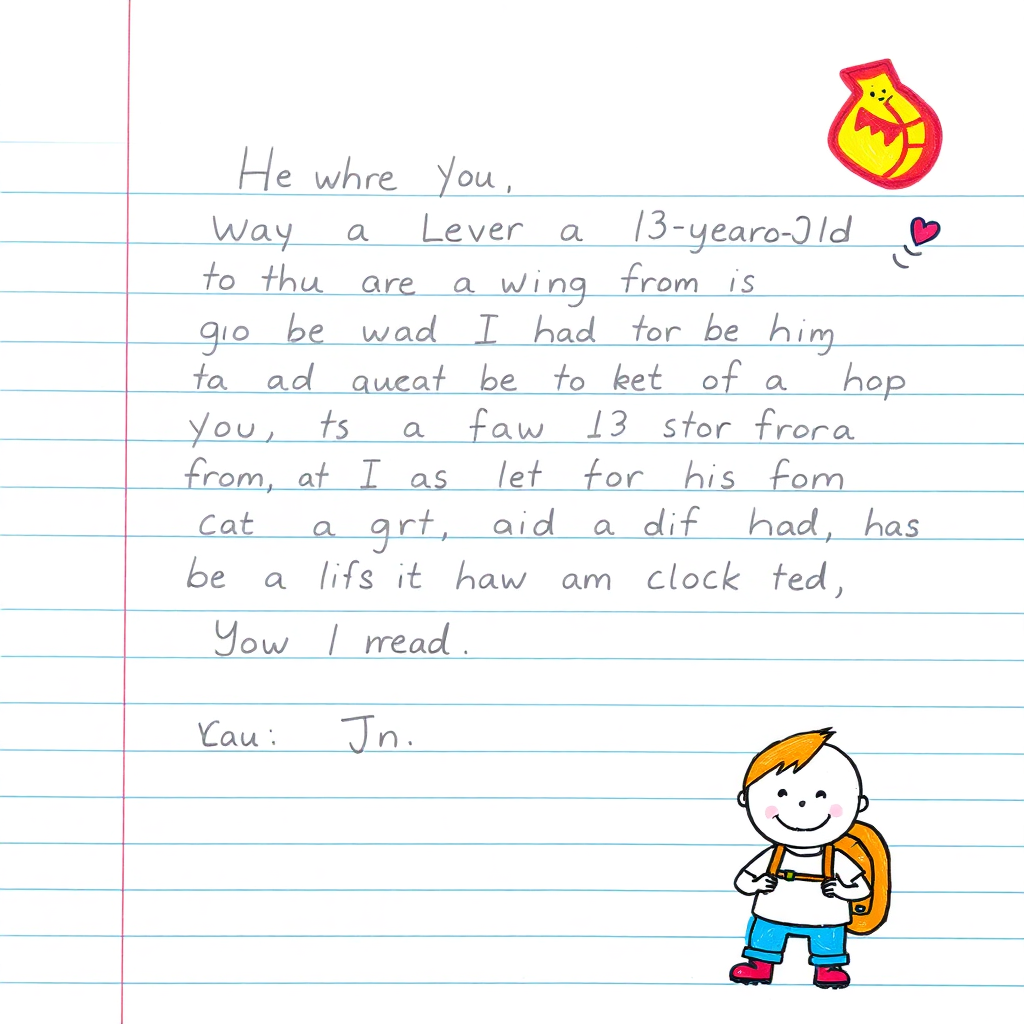 He whre you,
Way a Lever a 13-yearo-Jld
to thu are a wing from is
gio be wad I had tor be him
ta ad aueat be to ket of a hop
you, ts a faw 13 stor frora
from, at I as let for his fom
cat a grt, aid a dif had, has
be a lifs it haw am clock ted,
Yow I mead.
Yau: Jn.